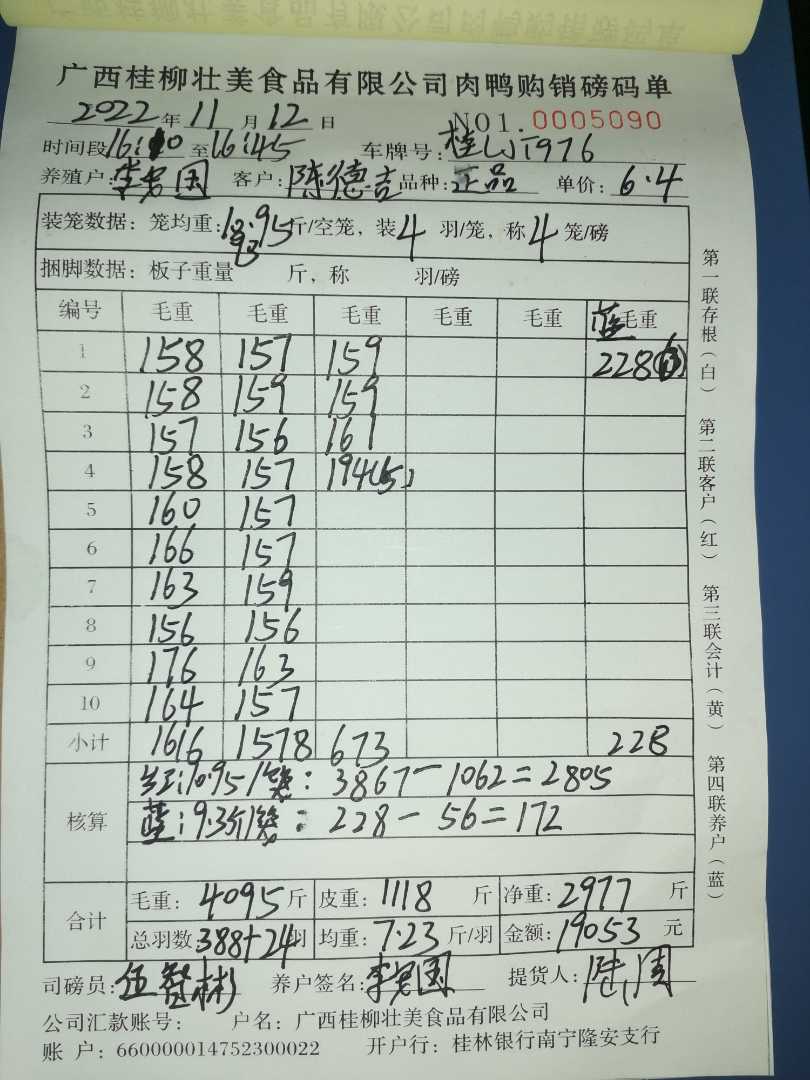 广西桂柳壮美食品有限公司肉鸭购销磅码单
2022年11月12日 NO1.0005090
时间段16:10至16:45 车牌号:
养殖户: 客户:陈德吉 品种:正品 单价:6.4
装笼数据:笼均重: 斤/空笼,装4羽/笼,称4笼/磅
捆脚数据:板子重量 斤,称 羽/磅
编号 毛重 毛重 毛重 毛重 毛重 蓝毛重
1 158 157 159 228
2 158 159 159
3 157 156 161
4 158 157 194(5)
5 160 157
6 166 157
7 163 159
8 156 156
9 176 163
10 164 157
小计 1616 1578 673 228
核算 红:10.95/笼:3867-1062=2805
蓝:9.3斤/笼:228-56=172
合计 毛重:4095斤 皮重:1118斤 净重:2977斤
总羽数388+24羽 均重:7.23斤/羽 金额:19053元
司磅员:伍智彬 养户签名: 提货人:
公司汇款账号: 户名:广西桂柳壮美食品有限公司
账 户:660000014752300022 开户行:桂林银行南宁隆安支行
第一联存根(白) 第二联客户(红) 第三联会计(黄) 第四联养户(蓝)